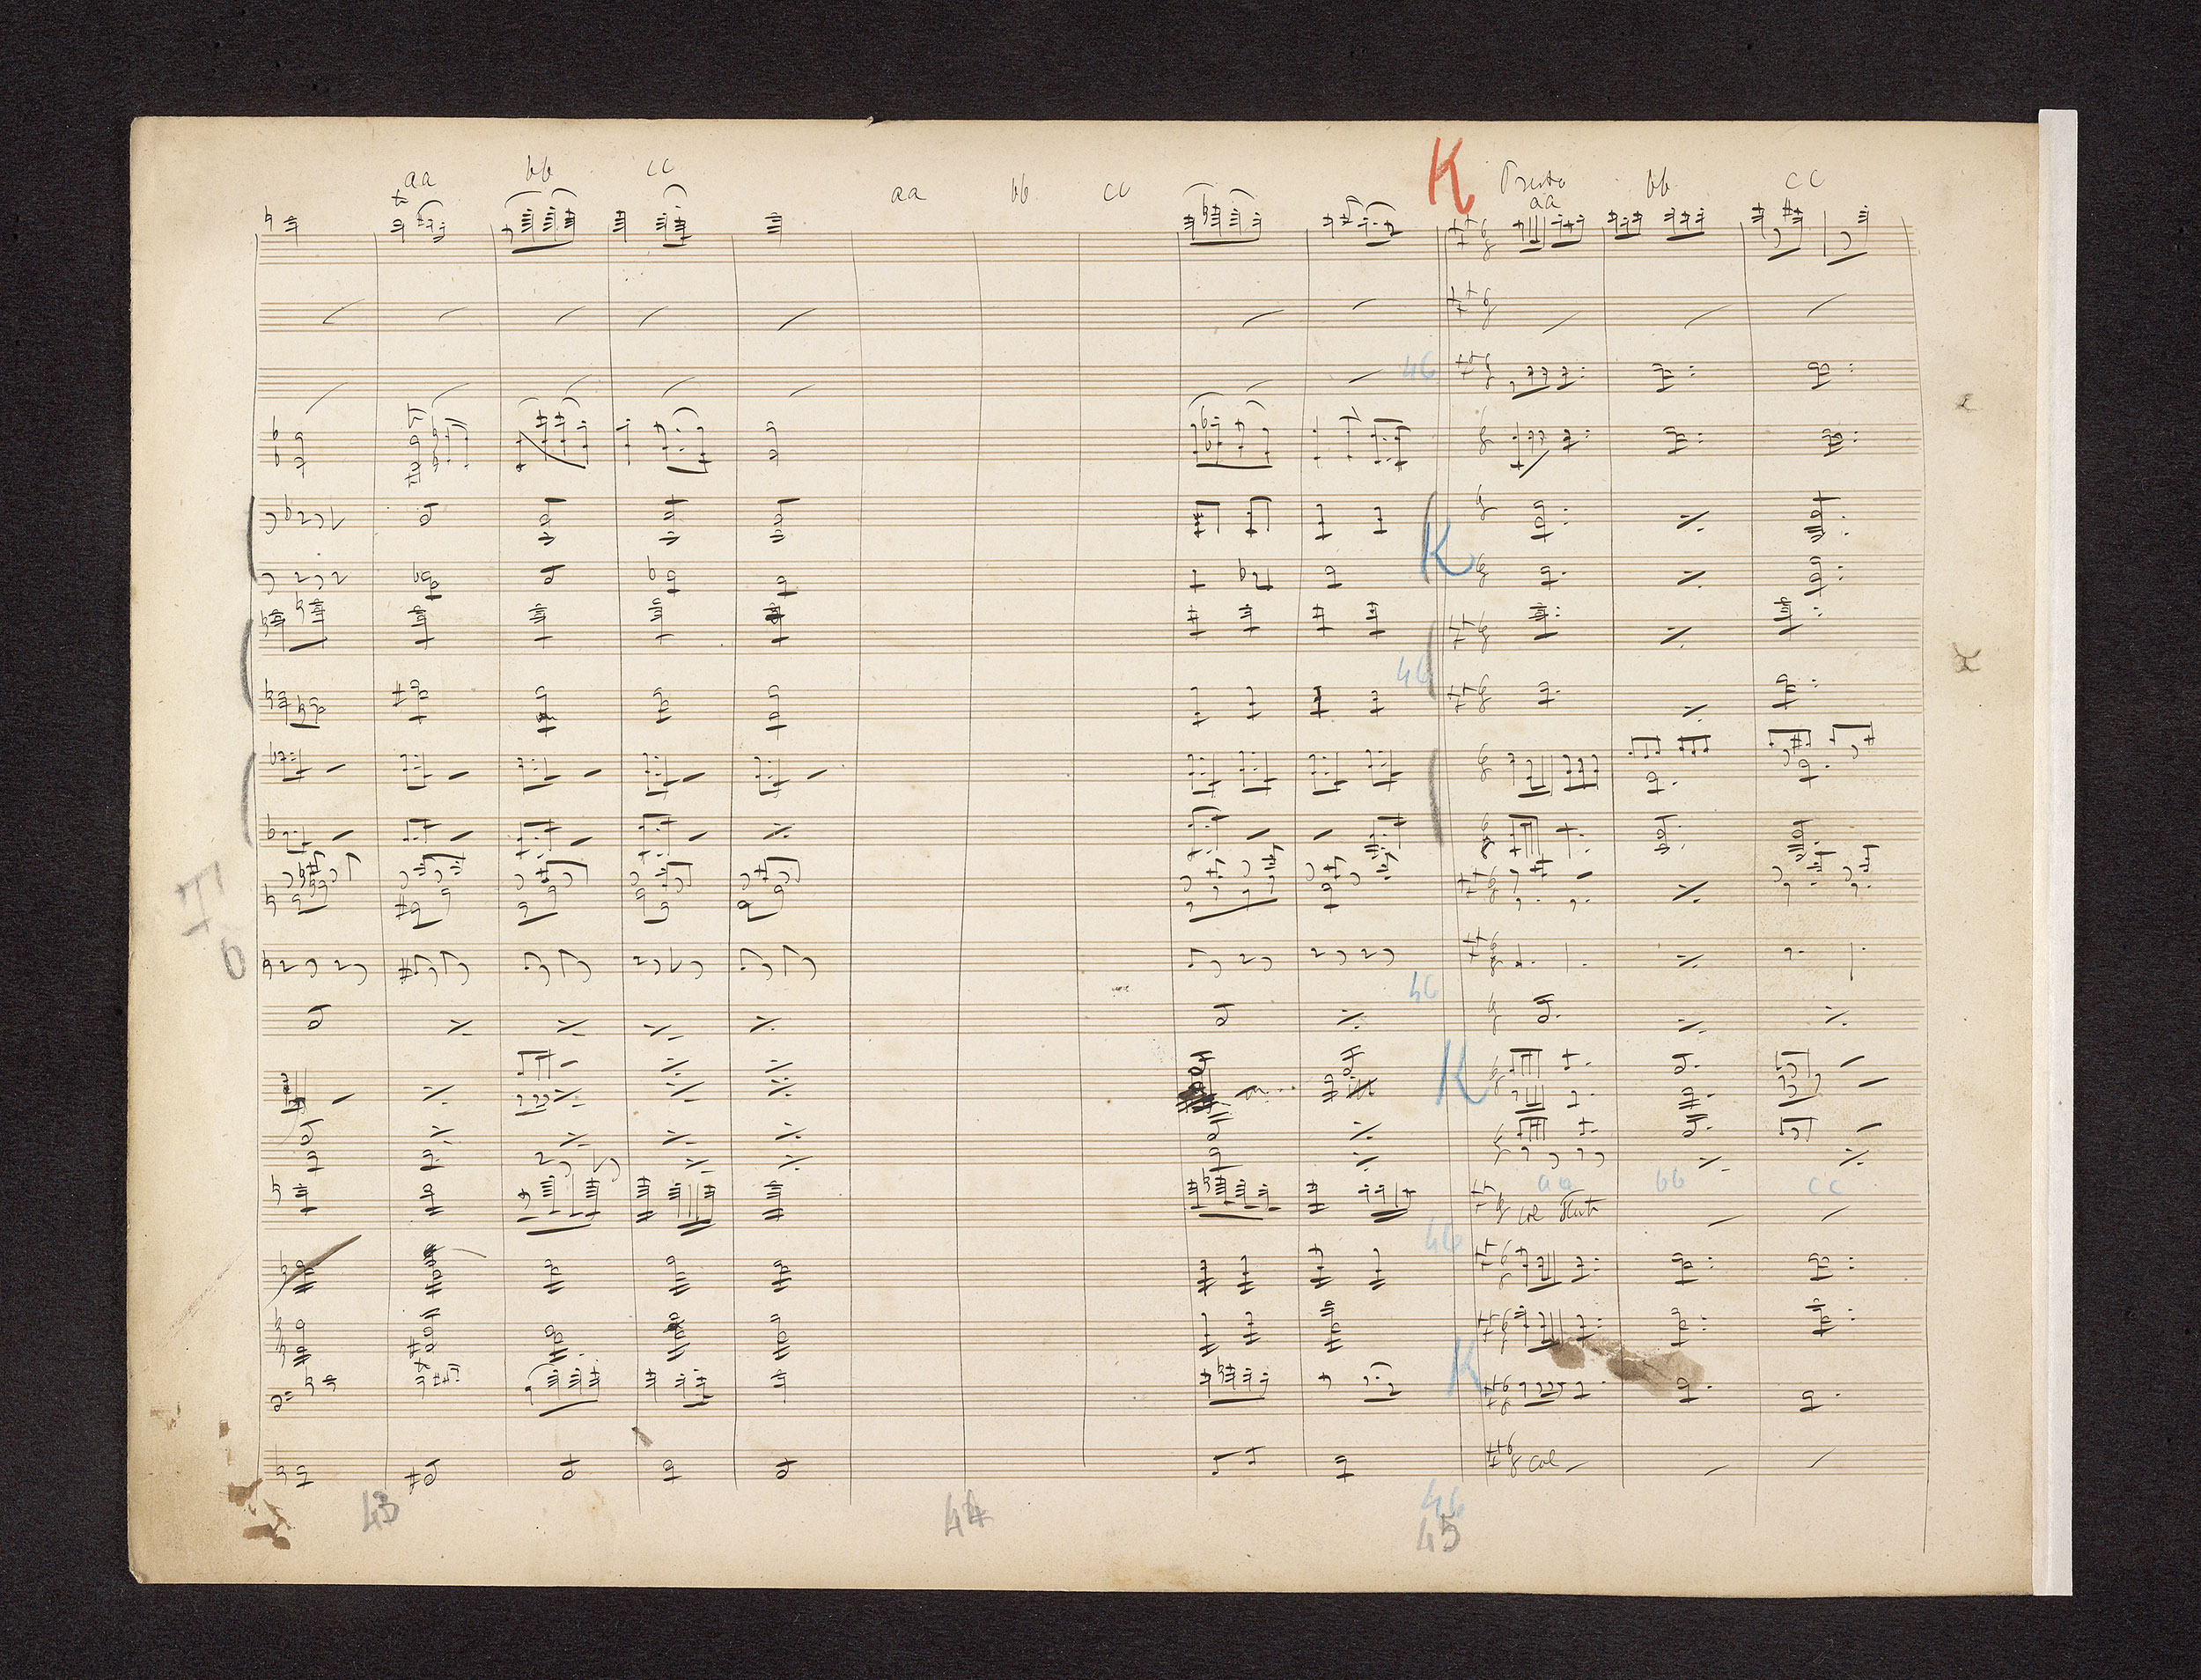 K
aa bb cc aa bb cc Presto bb cc
aa
46
K
46
I
6
46
K
aa bb cc
col Flute
46
K
col
43 44 46
45